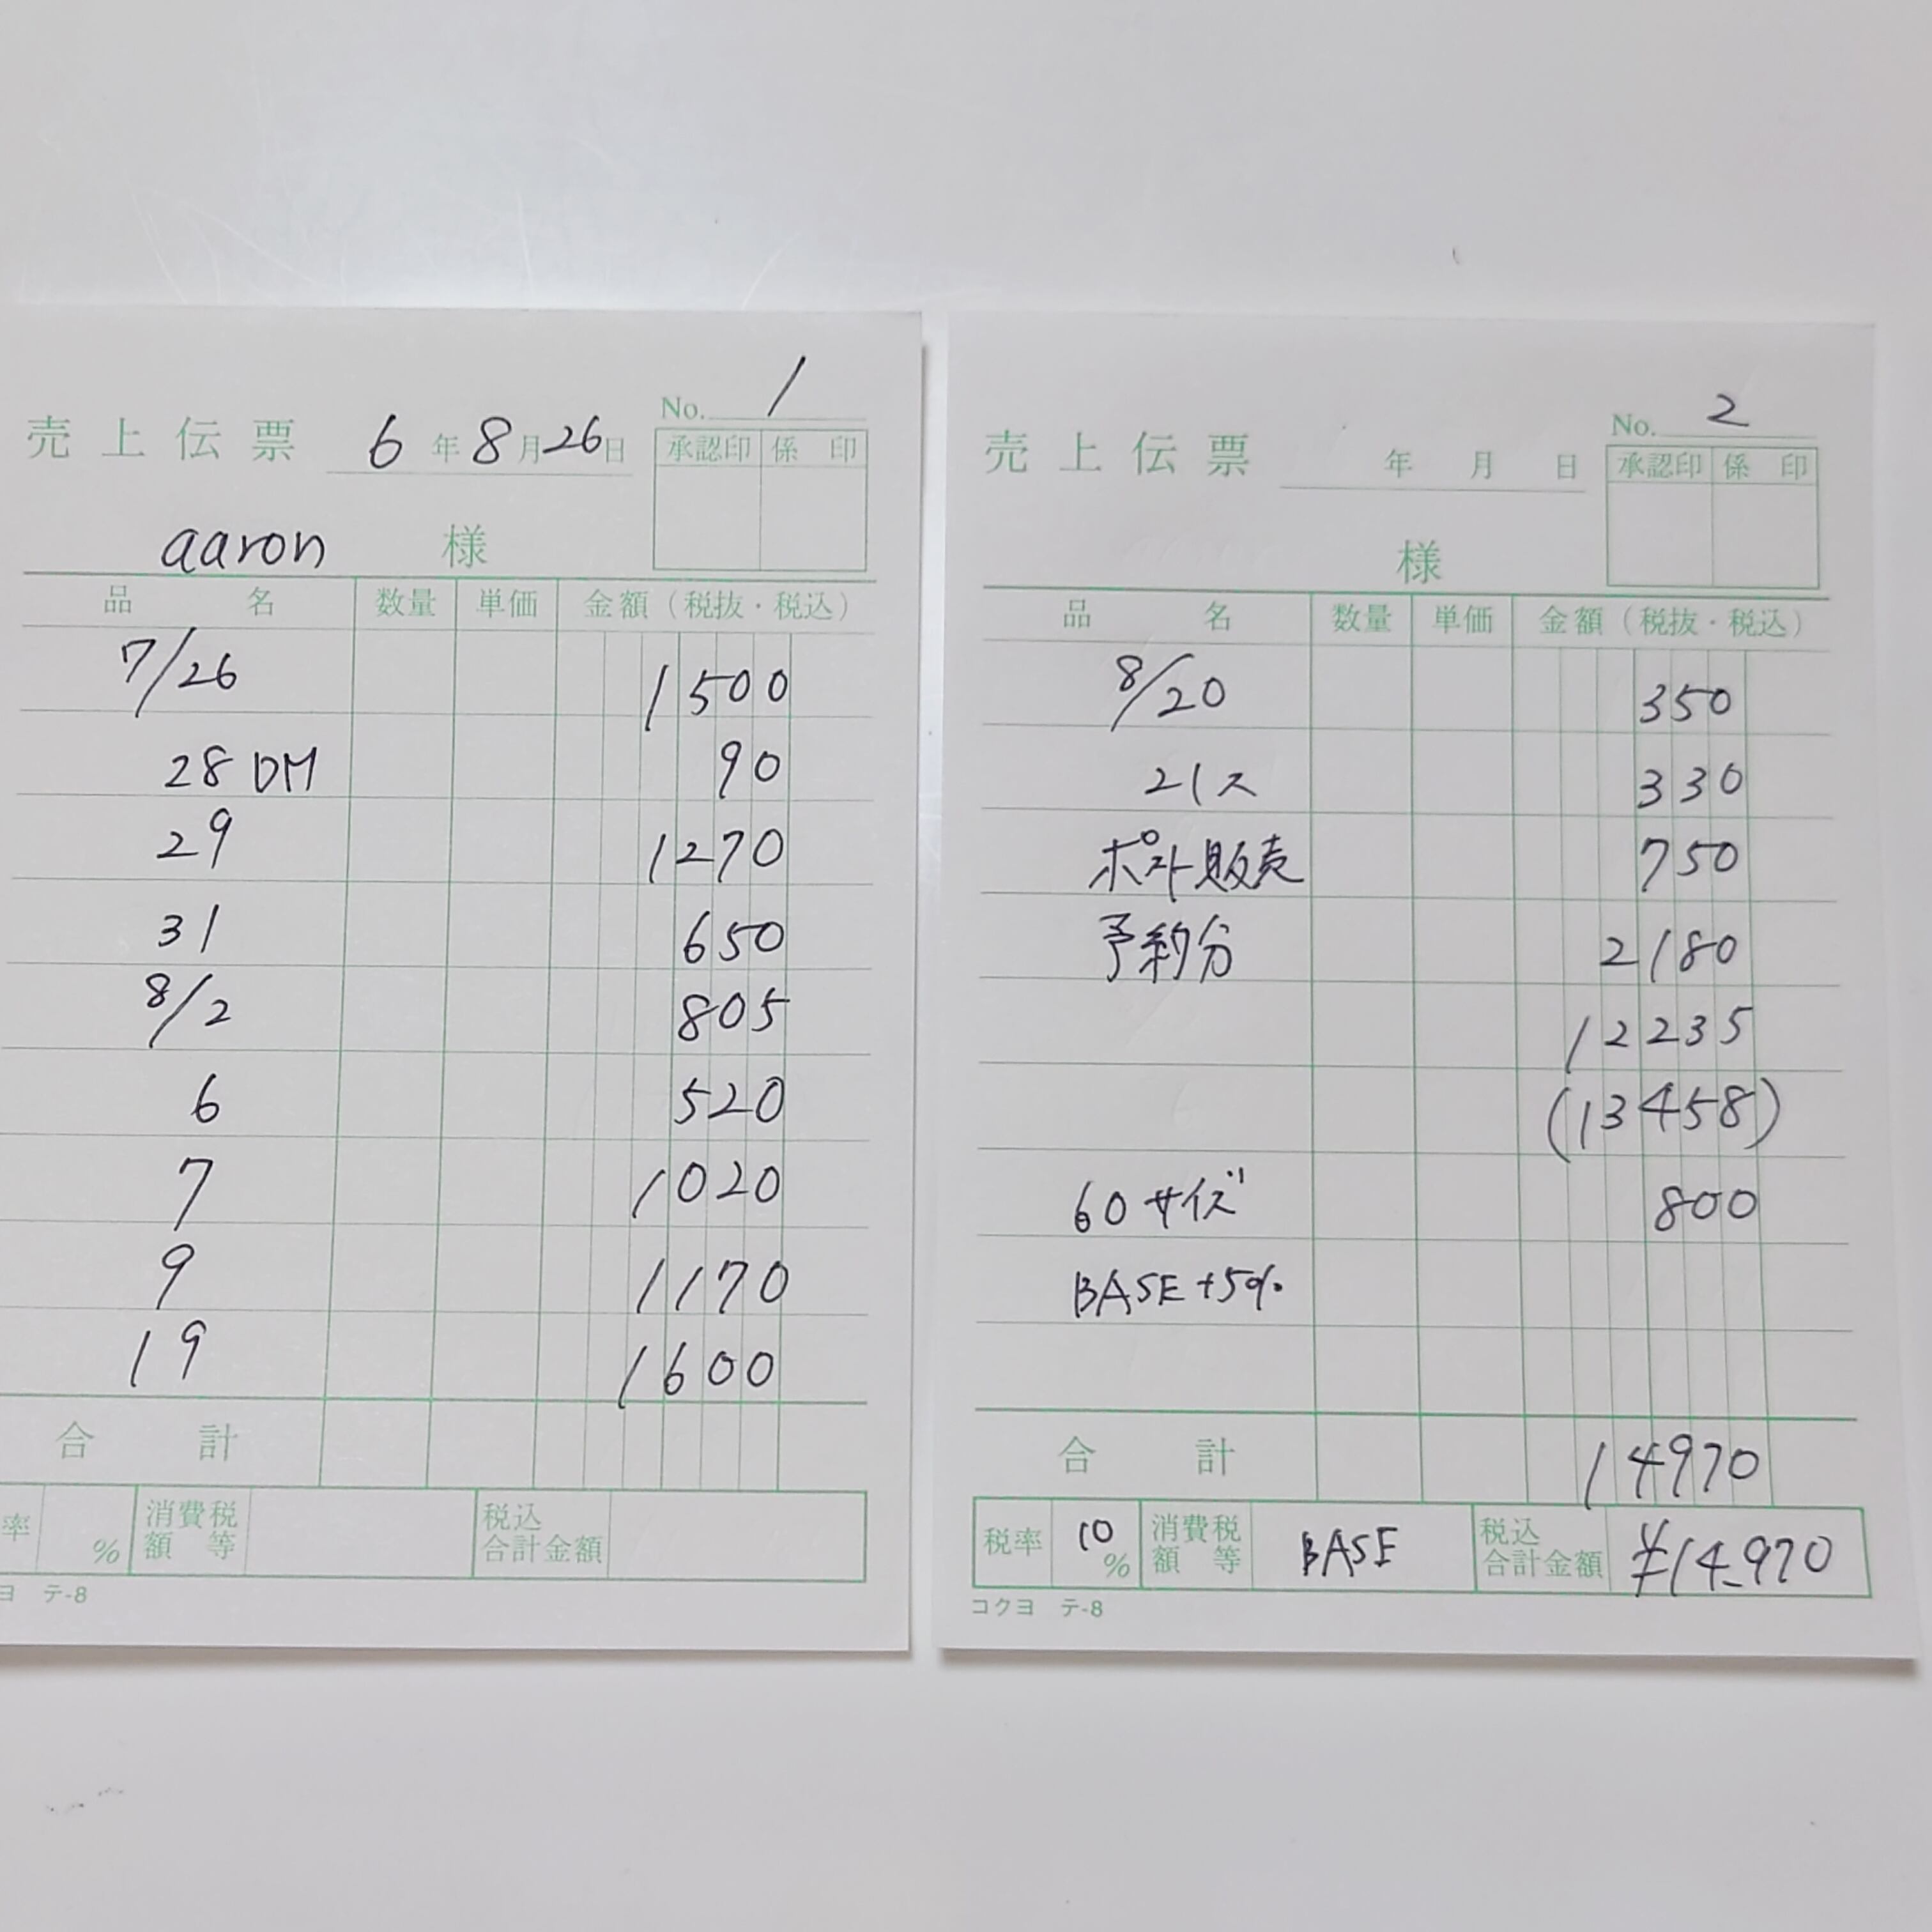 No. 1
売上伝票 6年8月26日
承認印 係印
aaron 様
品名 数量 単価 金額(税抜・税込)
7/26 1500
28 DM 90
29 1270
31 650
8/2 805
6 520
7 1020
9 1170
19 1600
合計
率 % 消費税額等 税込合計金額
ヨ テ-8
No. 2
売上伝票 年 月 日
承認印 係印
様
品名 数量 単価 金額(税抜・税込)
8/20 350
21ス 330
ポスト販売 750
予約分 2180
12235
(13458)
60サイズ 800
BASE+5%
合計 14970
税率 10% 消費税額等 BASE 税込合計金額 ¥14970
コクヨ テ-8